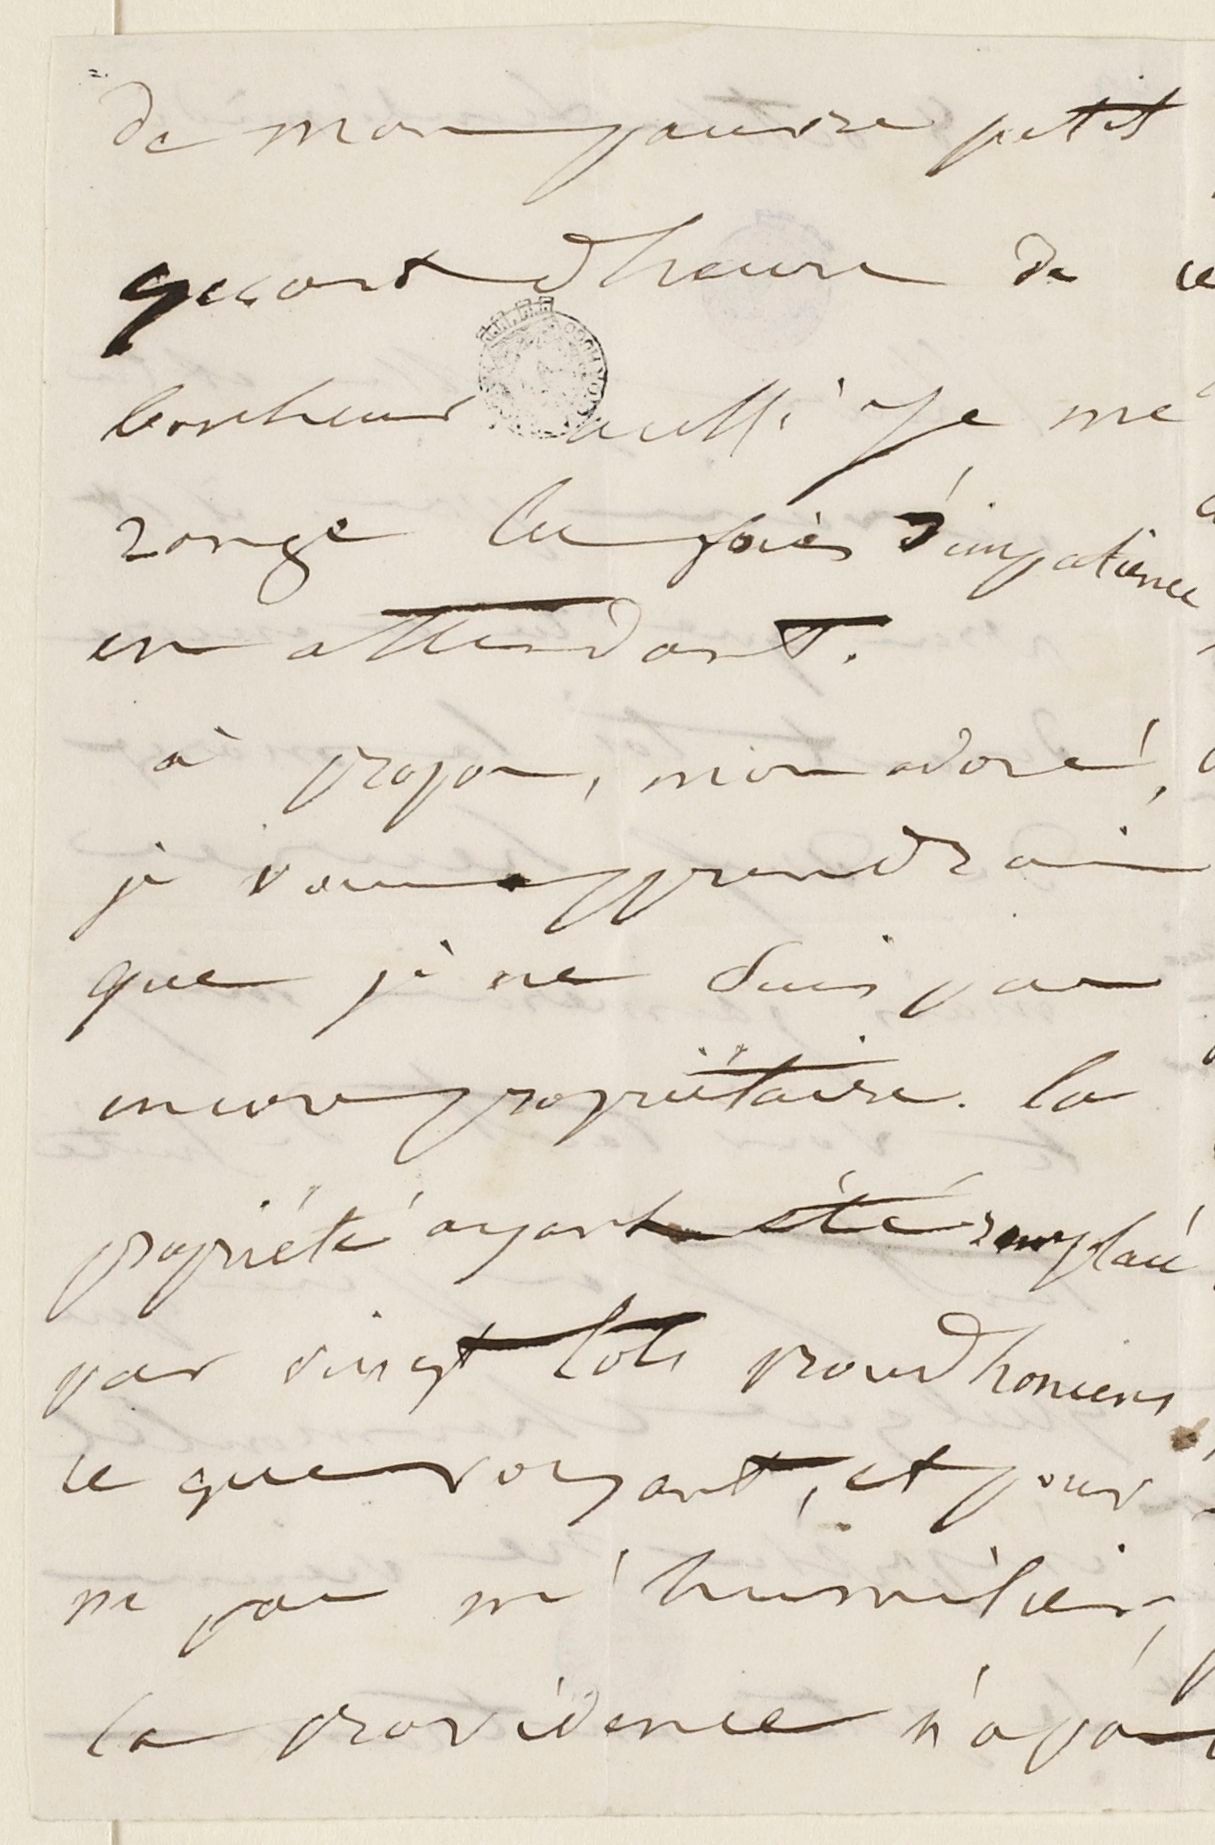 de mon pauvre petit
quart d'heure de ce
bonheur aussi je me
ronge les foies d'impatience
en attendant.
à propos, mon adoré,
je vous apprendrai
que je ne suis pas
encore propriétaire. la
propriété ayant été remplacé
par vingt lots proudhoniens
ce que voyant, et pour
ne pas m'humilier,
la providence n'a pas